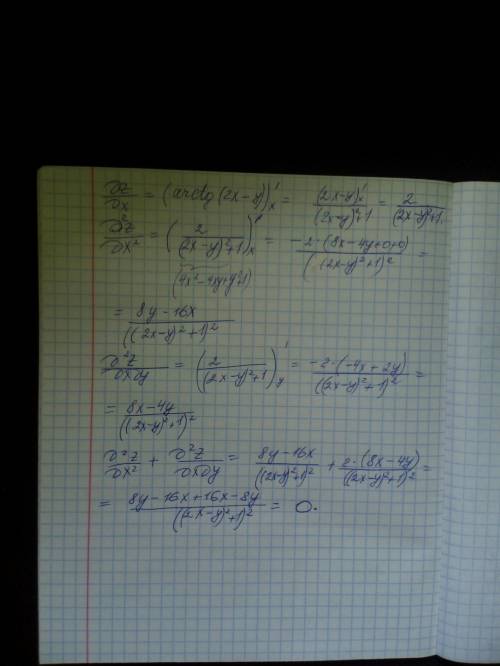 ∂z/∂x = (arctg(2x-y))'ₓ = (2x-y)'ₓ/((2x-y)²+1) = 2/((2x-y)²+1)
∂²z/∂x² = (2/((2x-y)²+1))'ₓ = -2·(8x-4y+0+0)/((2x-y)²+1)² =
(4x²-4xy+y²+1)
= (8y-16x)/((2x-y)²+1)²
∂²z/∂x∂y = (2/((2x-y)²+1))'y = -2·(-4x+2y)/((2x-y)²+1)² =
= (8x-4y)/((2x-y)²+1)²
∂²z/∂x² + ∂²z/∂x∂y = (8y-16x)/((2x-y)²+1)² + 2·(8x-4y)/((2x-y)²+1)² =
= (8y-16x+16x-8y)/((2x-y)²+1)² = 0.